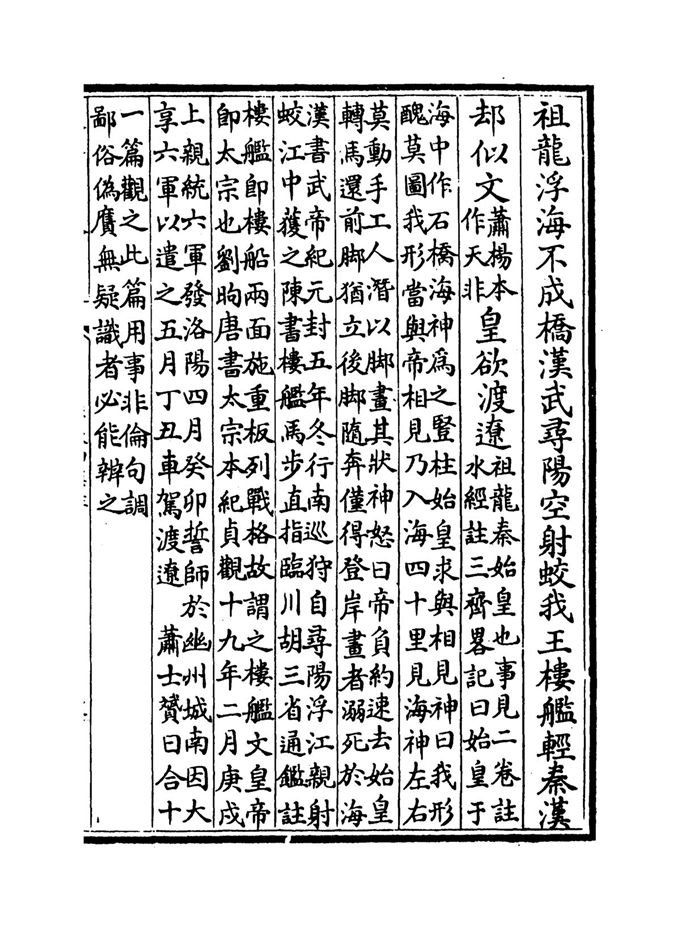 祖龍浮海不成橋漢武尋陽空射蛟我王樓艦輕秦漢
却似文
蕭楊本
作天非
皇欲渡遼
祖龍秦始皇也事見二卷註
水經註三齊畧記曰始皇于
海中作石橋海神為之豎柱始皇求與相見神曰我形
醜莫圖我形當與帝相見乃入海四十里見海神左右
莫動手工人潛以脚畫其狀神怒曰帝負約速去始皇
轉馬還前脚猶立後脚隨奔僅得登岸畫者溺死於海
漢書武帝紀元封五年冬行南巡狩自尋陽浮江親射
蛟江中獲之陳書樓艦馬步直指臨川胡三省通鑑註
樓艦即樓船兩面施重板列戰格故謂之樓艦文皇帝
即太宗也劉昫唐書太宗本紀貞觀十九年二月庚戌
上親統六軍發洛陽四月癸卯誓師於幽州城南因大
享六軍以遣之五月丁丑車駕渡遼 蕭士贇曰合十
一篇觀之此篇用事非倫句調
鄙俗偽贋無疑識者必能辨之